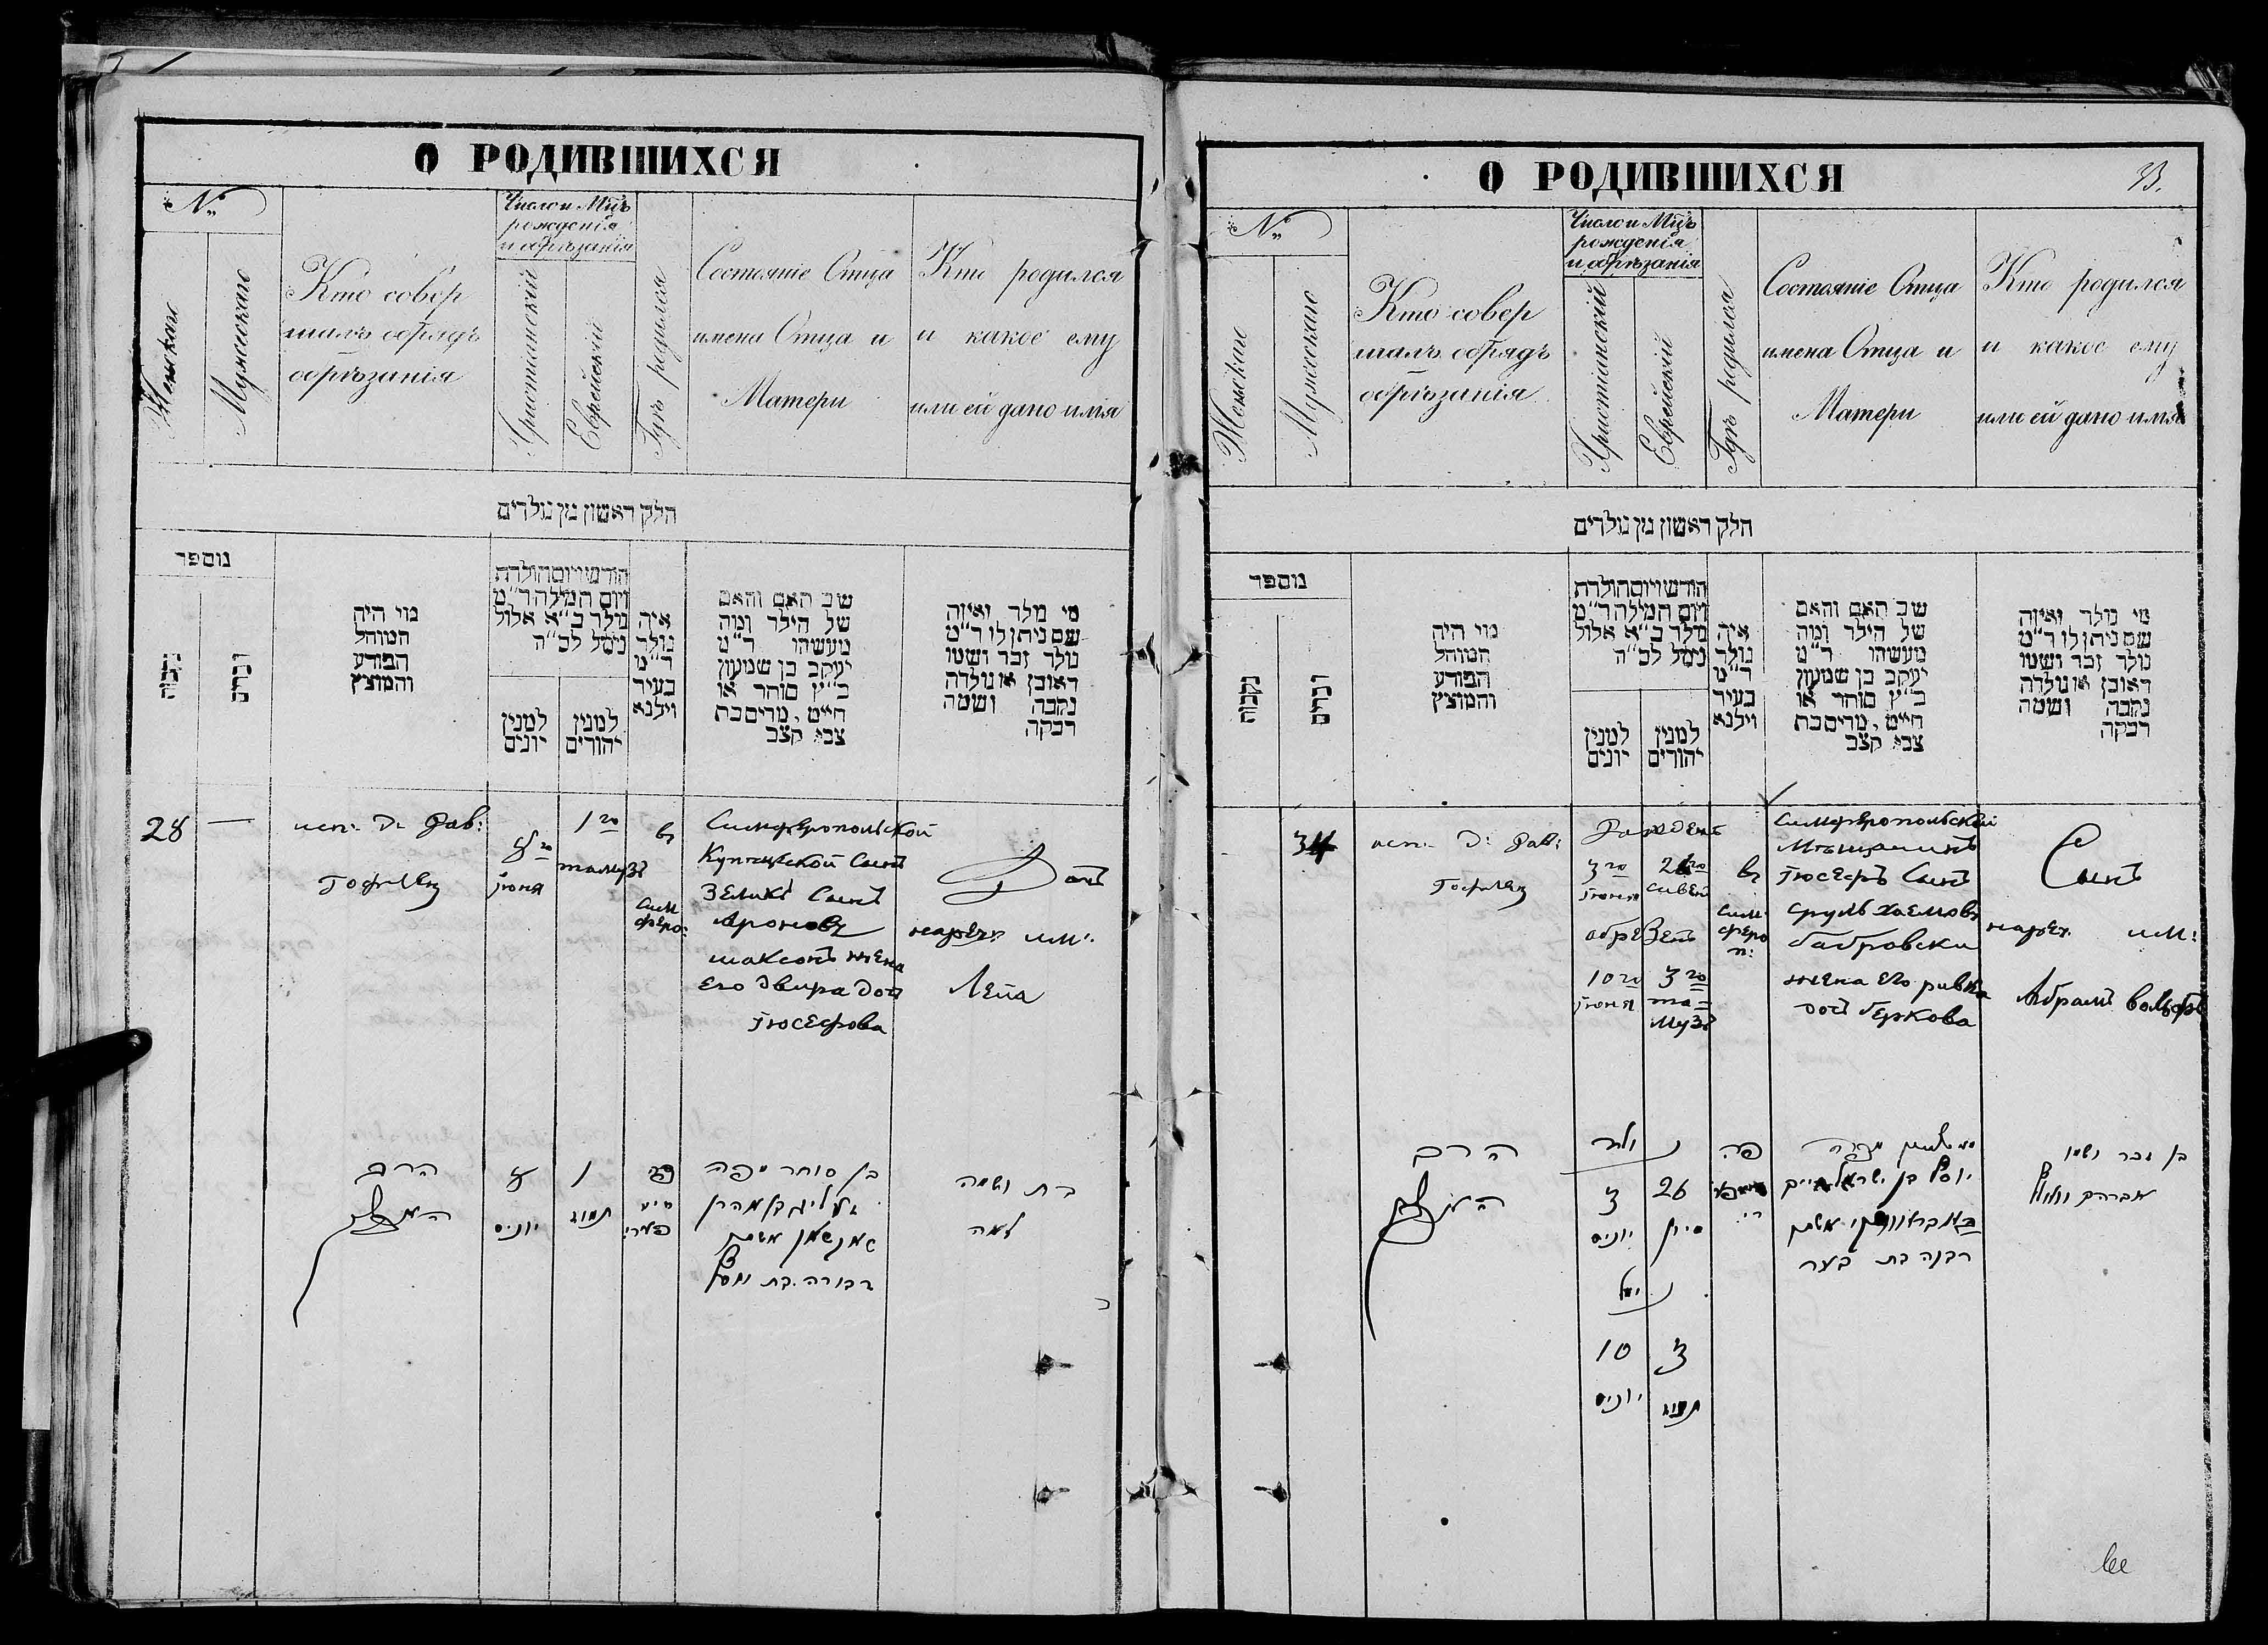 О РОДИВШИХСЯ
№
Женскаго
Мужескаго
Кто совер
шалъ обрядъ
обрѣзанія
Число и Мѣцъ
рожденія
и обрѣзанія
Христіанскій
Еврейскій
Гдѣ родился
Состояніе Отца
имена Отца и
Матери
Кто родился
и какое ему
или ей дано имя
חלק ראשון מן נולדים
מוספר
נקבה
זכרים
מי היה
המוהל
הפורע
והמוצץ
חודש ויום הולדת
ויום המילה ר״מ
נולד ב״א אלול
נימל לב״ה
למנין
יונים
למנין
יהודים
איה
נולד
ר״מ
בעיר
ווילנא
שם האב והאם
של הילד ומה
מעשהו ר״מ
יעקב בן שמעון
כ״ץ סוחר או
חייט, מרים בת
צבי קצב
מי נולד ואיזה
שם ניתן לו ר״מ
נולד זכר ושמו
ראובן או נולדה
נקבה ושמה
רבקה
28 —
исп. Д. Рав:
Гофшец
8го
іюня
1го
тамузъ
въ
Сим
феро:
Симферопольской
Купецкой Сынъ
Зеликъ Сынъ
Ароновъ
шаксонъ жена
его Двира Доч
іюсефова
Доч
нареч. им.
Лея
הרב
8
יוניס
1
תמוז
פה
בן סוחר מפה
בת ושמה
לאה
О РОДИВШИХСЯ
33.
№
Женскаго
Мужескаго
Кто совер
шалъ обрядъ
обрѣзанія
Число и Мѣцъ
рожденія
и обрѣзанія
Христіанскій
Еврейскій
Гдѣ родился
Состояніе Отца
имена Отца и
Матери
Кто родился
и какое ему
или ей дано имя
חלק ראשון מן נולדים
מוספר
נקבה
זכרים
מי היה
המוהל
הפורע
והמוצץ
חודש ויום הולדת
ויום המילה ר״מ
נולד ב״א אלול
נימל לב״ה
למנין
יונים
למנין
יהודים
איה
נולד
ר״מ
בעיר
ווילנא
שם האב והאם
של הילד ומה
מעשהו ר״מ
יעקב בן שמעון
כ״ץ סוחר או
חייט, מרים בת
צבי קצב
מי נולד ואיזה
שם ניתן לו ר״מ
נולד זכר ושמו
ראובן או נולדה
נקבה ושמה
רבקה
34
исп. Д. Рав:
Гофшец
Рожденъ
3го
іюня
26го
сивен
обрѣзенъ
10го
іюня
3го
та=
музъ
въ
Сим
феро
п:
Симферопольской
Мѣщанинъ
іюсефъ Сынъ
Сруль Хаемовъ
бабровски
жена его ривка
доч беркова
Сынъ
нареч. им:
Абрамъ вольфъ
הרב
נולד
3
יוניס
26
סיון
נימול
10
יוניס
3
תמוז
פה
יוסף בן ישראל חיים
רבקה בת בער
בן זכר ושמו
אברהם וואלף